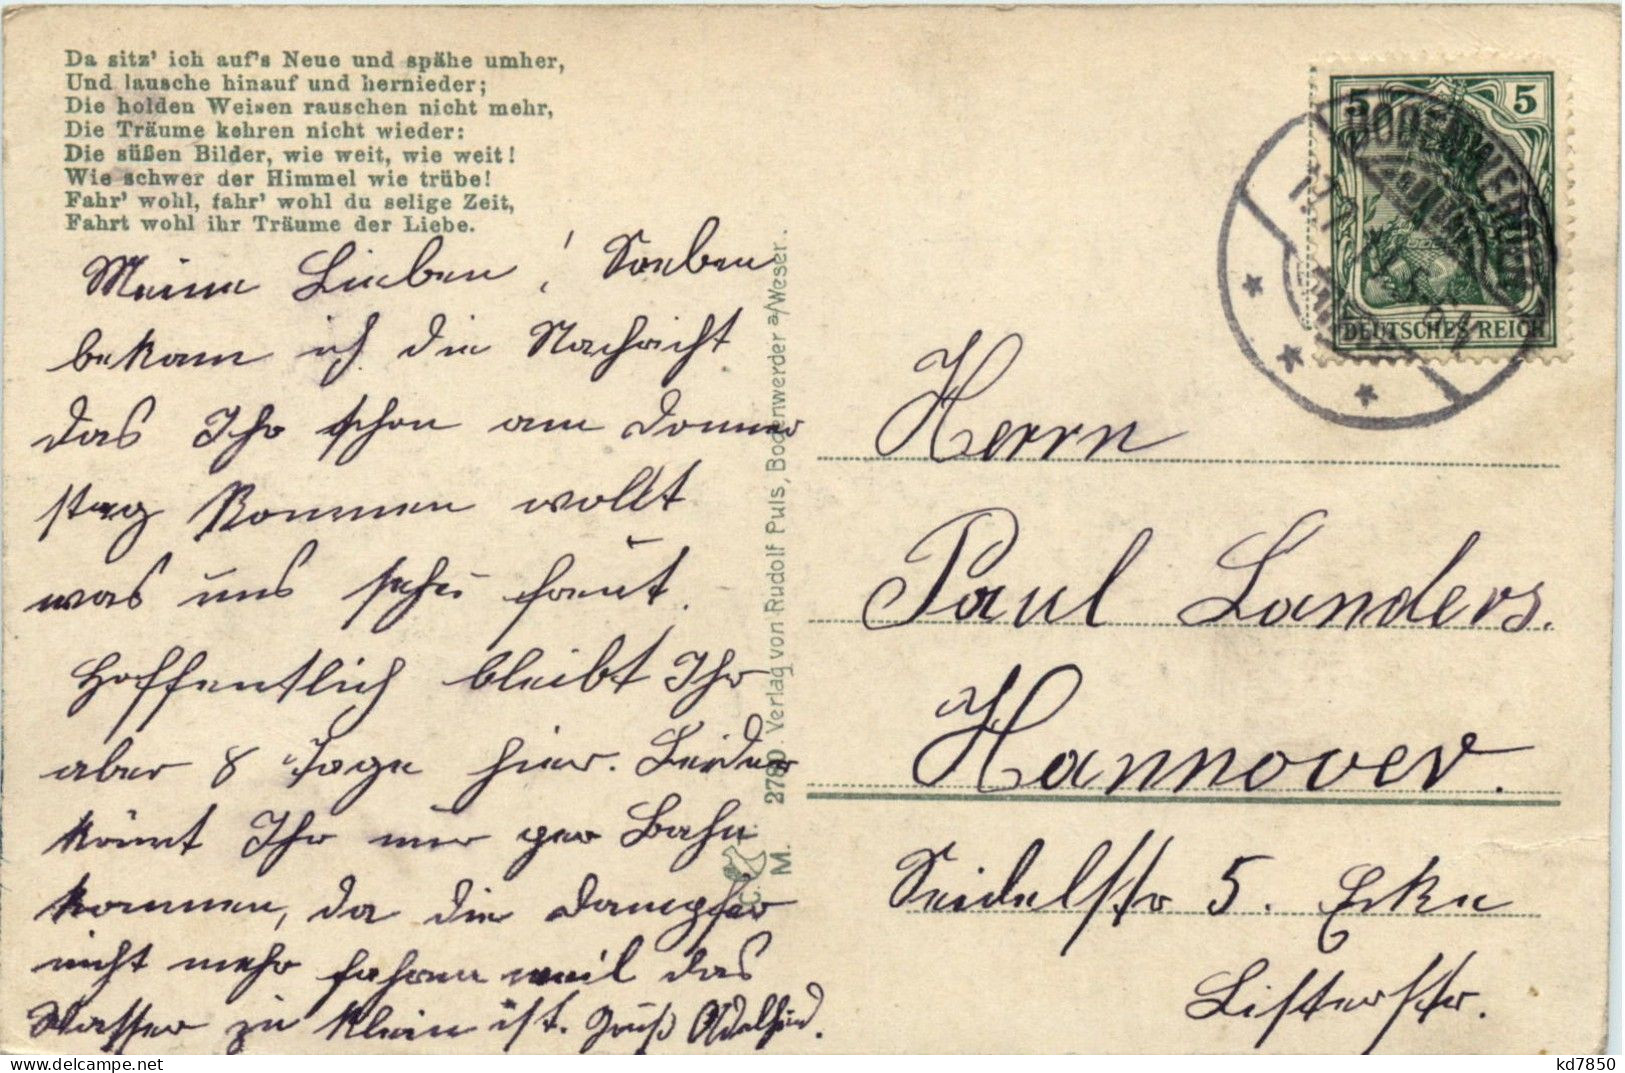 Da sitz' ich auf's Neue und spähe umher,
Und lausche hinauf und hernieder;
Die holden Weisen rauschen nicht mehr,
Die Träume kehren nicht wieder:
Die süßen Bilder, wie weit, wie weit!
Wie schwer der Himmel wie trübe!
Fahr' wohl, fahr' wohl du selige Zeit,
Fahrt wohl ihr Träume der Liebe.
Meine Lieben! Soeben
bekam ich die Nachricht
das Ihr schon am Donner
stag kommen wollt
was uns sehr freut.
Hoffentlich bleibt Ihr
aber 8 Tage hier. Leider
könnt Ihr nur per Bahn
kommen, da die Dampfer
nicht mehr fahren weil das
Wasser zu klein ist. Gruß Adelheid.
M. 2780 Verlag von Rudolf Puls, Bodenwerder a/Weser.
5 5
DEUTSCHES REICH
BODENWERDER
Herrn
Paul Landers.
Hannover.
Seidelstr 5. Ecke
Listerstr.
kd7850